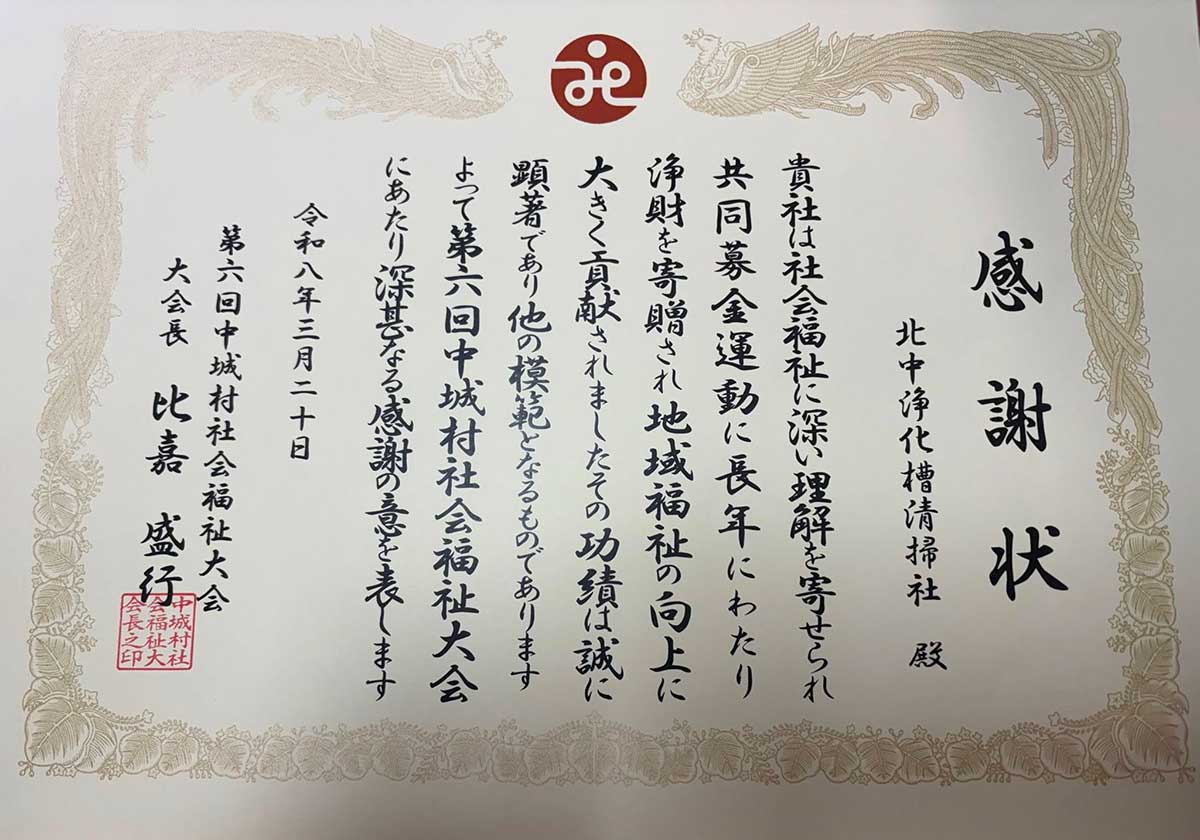 感謝状
北中浄化槽清掃社　殿
貴社は社会福祉に深い理解を寄せられ
共同募金運動に長年にわたり
浄財を寄贈され地域福祉の向上に
大きく貢献されましたその功績は誠に
顕著であり他の模範となるものであります
よって第六回中城村社会福祉大会
にあたり深甚なる感謝の意を表します
令和八年三月二十日
第六回中城村社会福祉大会
大会長　比嘉　盛行
中城村社
会福祉大
会長之印